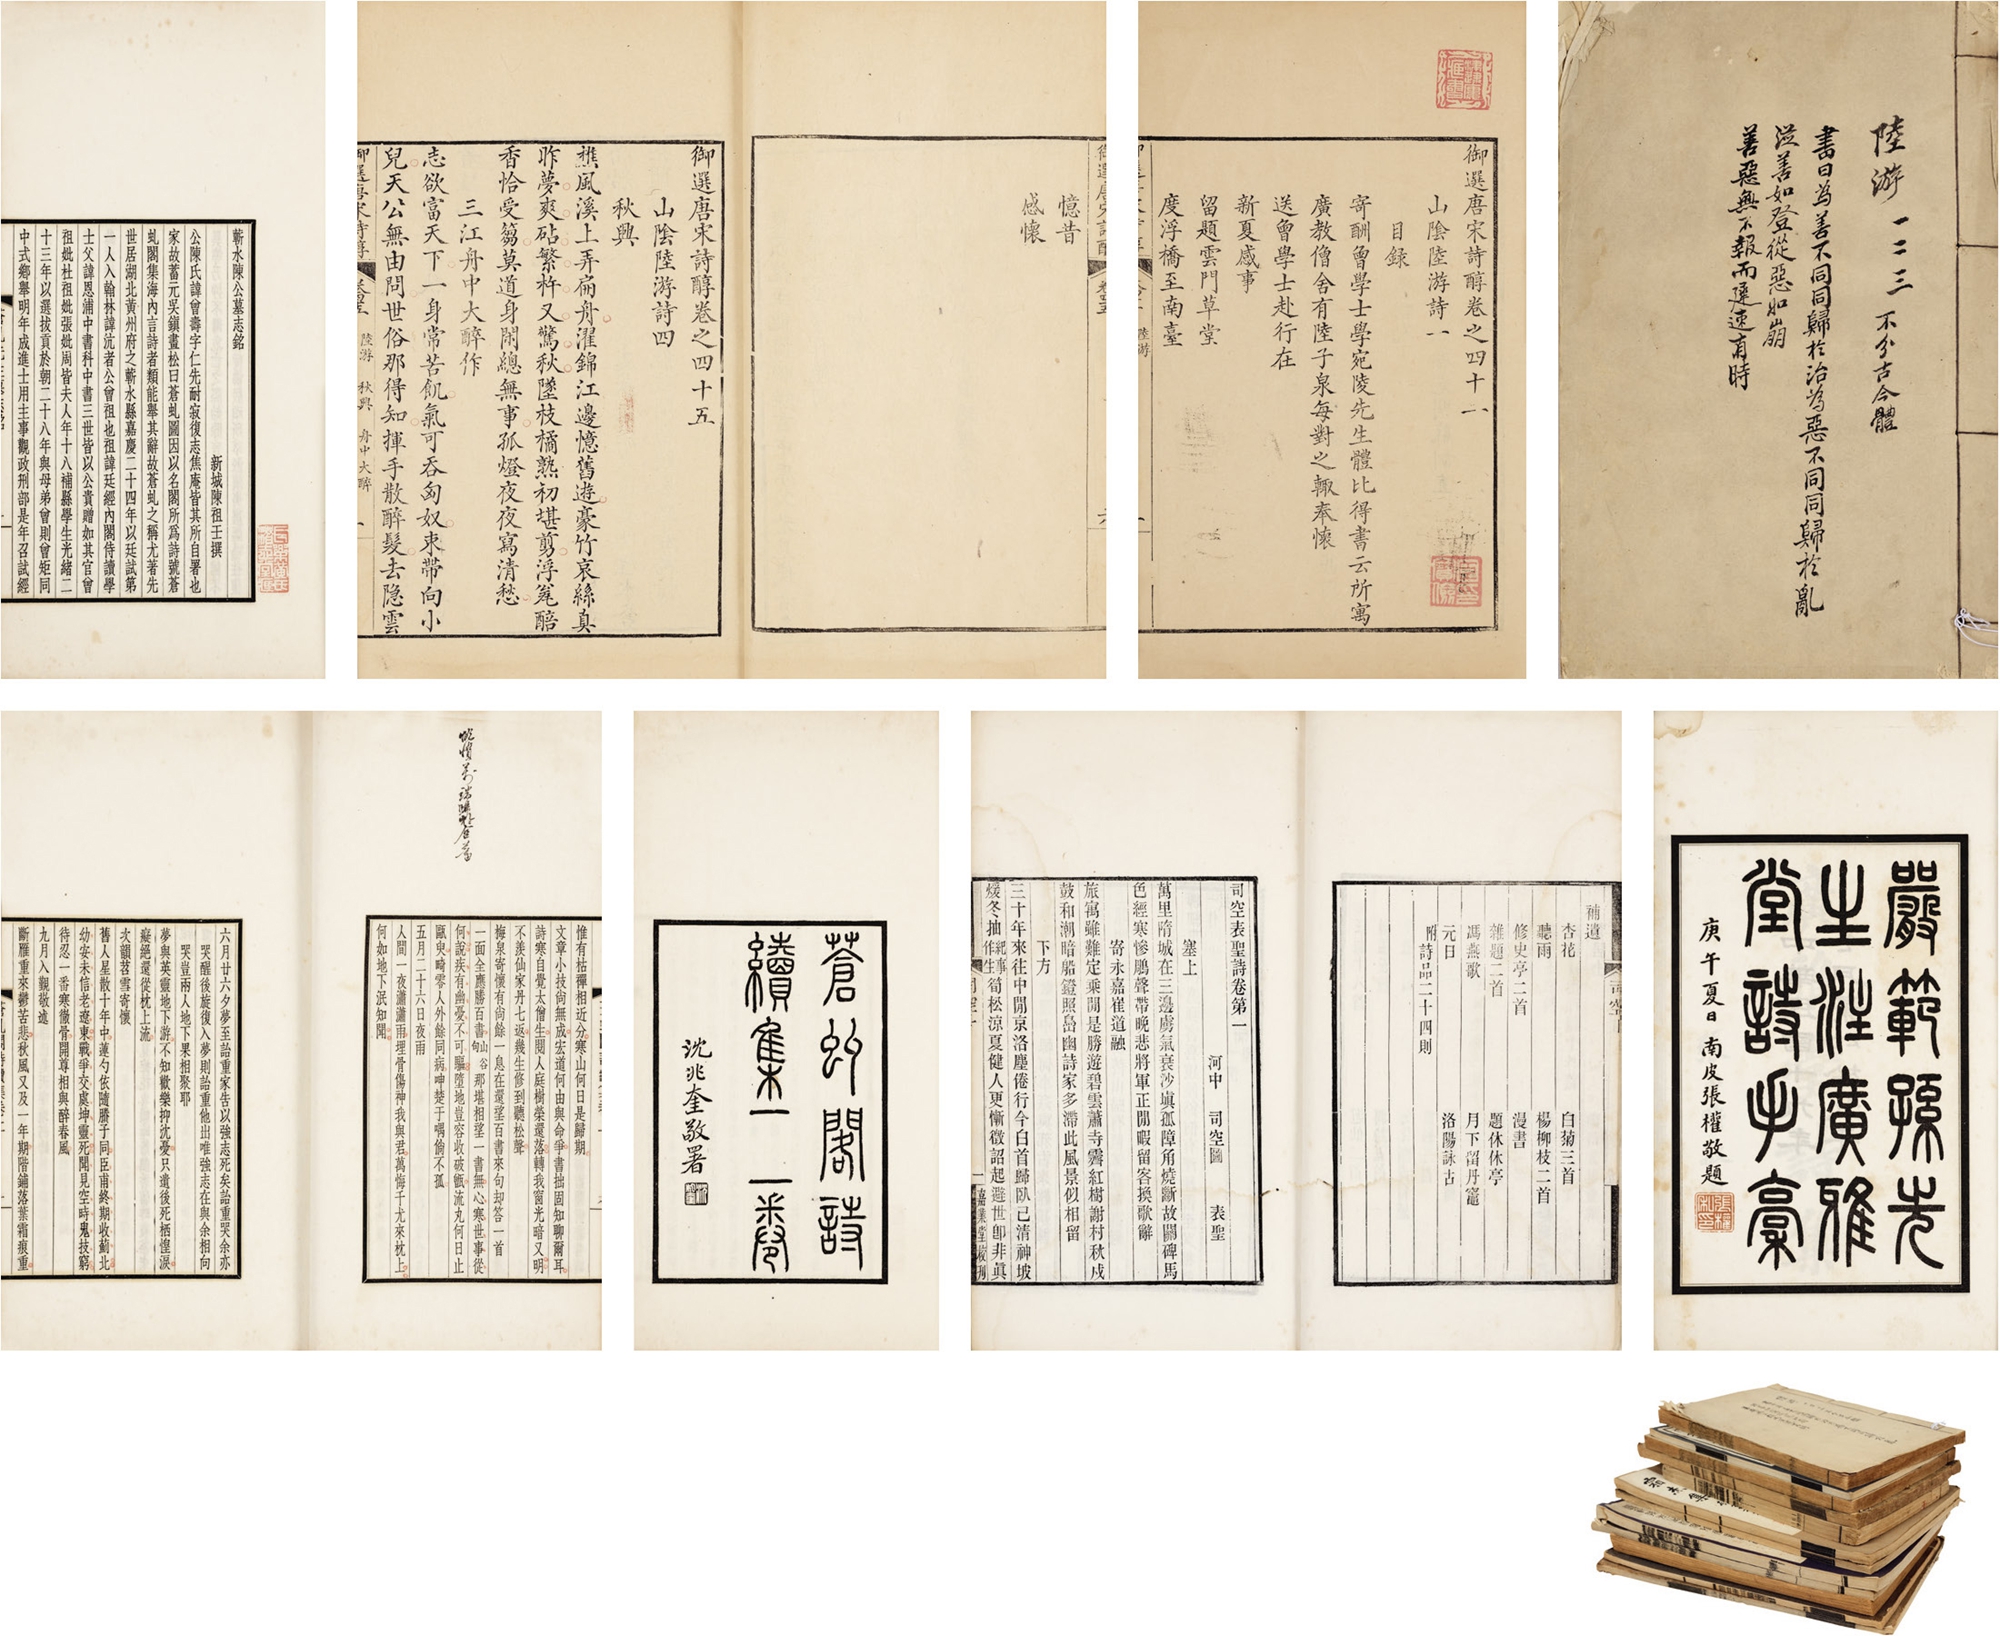 陸游 一二三 不分古今體
書曰為善不同同歸於治為惡不同同歸於亂
從善如登從惡如崩
善惡無不報而遲速有時
御選唐宋詩醇卷之四十一
山陰陸游詩一
目錄
寄酬曾學士學宛陵先生體比得書云所寓
廣教僧舍有陸子泉每對之輒奉懷
送曾學士赴行在
新夏感事
留題雲門草堂
度浮橋至南臺
憶昔
感懷
御選唐宋詩醇卷之四十五
山陰陸游詩四
秋興
樵風溪上弄扁舟濯錦江邊憶舊遊豪竹哀絲真
昨夢爽砧繁杵又驚秋墜枝橘熟初堪剪浮甕醅
香恰受芻莫道身閑總無事孤燈夜夜寫清愁
三江舟中大醉作
志欲富天下一身常苦飢氣可吞匈奴束帶向小
兒天公無由問世俗那得知揮手散醉髮去隱雲
陸游 秋興 舟中大醉
蘄水陳公墓志銘
新城陳祖壬撰
公陳氏諱曾壽字仁先耐寂復志焦庵皆其所自署也
家故蓄元吳鎮畫松曰蒼虬圖因以名閣所爲詩號蒼
虬閣集海內言詩者類能舉其辭故蒼虬之稱尤著先
世居湖北黃州府之蘄水縣嘉慶二十四年以廷試第
一人入翰林諱沆者公曾祖也祖諱廷經內閣侍讀學
士父諱恩浦中書科中書三世皆以公貴贈如其官曾
祖妣杜祖妣張妣周皆夫人年十八補縣學生光緒二
十三年以選拔貢於朝二十八年與母弟曾則曾矩同
中式鄉舉明年成進士用主事觀政刑部是年召試經
嚴範孫先
生注廣雅
堂詩手稾
庚午夏日 南皮張權敬題
補遺
杏花
白菊三首
聽雨
楊柳枝二首
修史亭二首
漫書
雜題二首
題休休亭
馮燕歌
月下留丹竈
元日
洛陽詠古
附詩品二十四則
司空表聖詩卷第一
河中 司空圖 表聖
塞上
萬里隋城在三邊虜氣衰沙塡孤障角燒斷故關碑馬
色經寒慘鵰聲帶晚悲將軍正閒暇留客換歌辭
寄永嘉崔道融
旅寓雖難定乘閒是勝遊碧雲蕭寺霽紅樹謝村秋戍
鼓和潮暗船鐙照島幽詩家多滯此風景似相留
下方
三十年來往中閒京洛塵倦行今白首歸臥已清神坡
煖冬抽筍松涼夏健人更慚徵詔起避世卽非眞
嘉業堂校刋
蒼虬閣詩
續集二卷
沈兆奎敬署
惟有枯禪相近分寒山何日是歸期
文章小技尙無成宏道何由與命爭書拙固知聊爾耳
詩寒自覺太僧生閱人庭樹榮還落轉我窗光暗又明
不羨仙家丹七返幾生修到聽松聲
梅泉寄懷有尙餘一息在還望百書來句却答一首
一面全應勝百書山谷句那堪相望一書無心寒世事從
何說疾有幽憂不可驅墮地豈容收破甑流丸何日止
甌臾畸零人外餘同病呻楚于喁倘不孤
五月二十六日夜雨
人間一夜瀟瀟雨埋骨傷神我與君萬悔千尤來枕上
何如地下泯知聞
六月廿六夕夢至詒重家告以強志死矣詒重哭余亦
哭醒後旋復入夢則詒重他出唯強志在與余相向
哭豈兩人地下果相聚耶
夢與英靈地下游不知歡樂抑沈憂只遺後死栖惶淚
癡絕還從枕上流
次韻苕雪寄懷
舊人星散十年中蓮勺依隨賸子同臣甫終期收薊北
幼安未信老遼東戰爭交處坤靈死聞見空時鬼技窮
待忍一番寒徹骨開尊相與醉春風
九月入觀敬述
斷雁重來鬱苦悲秋風又及一年期階鋪落葉霜痕重